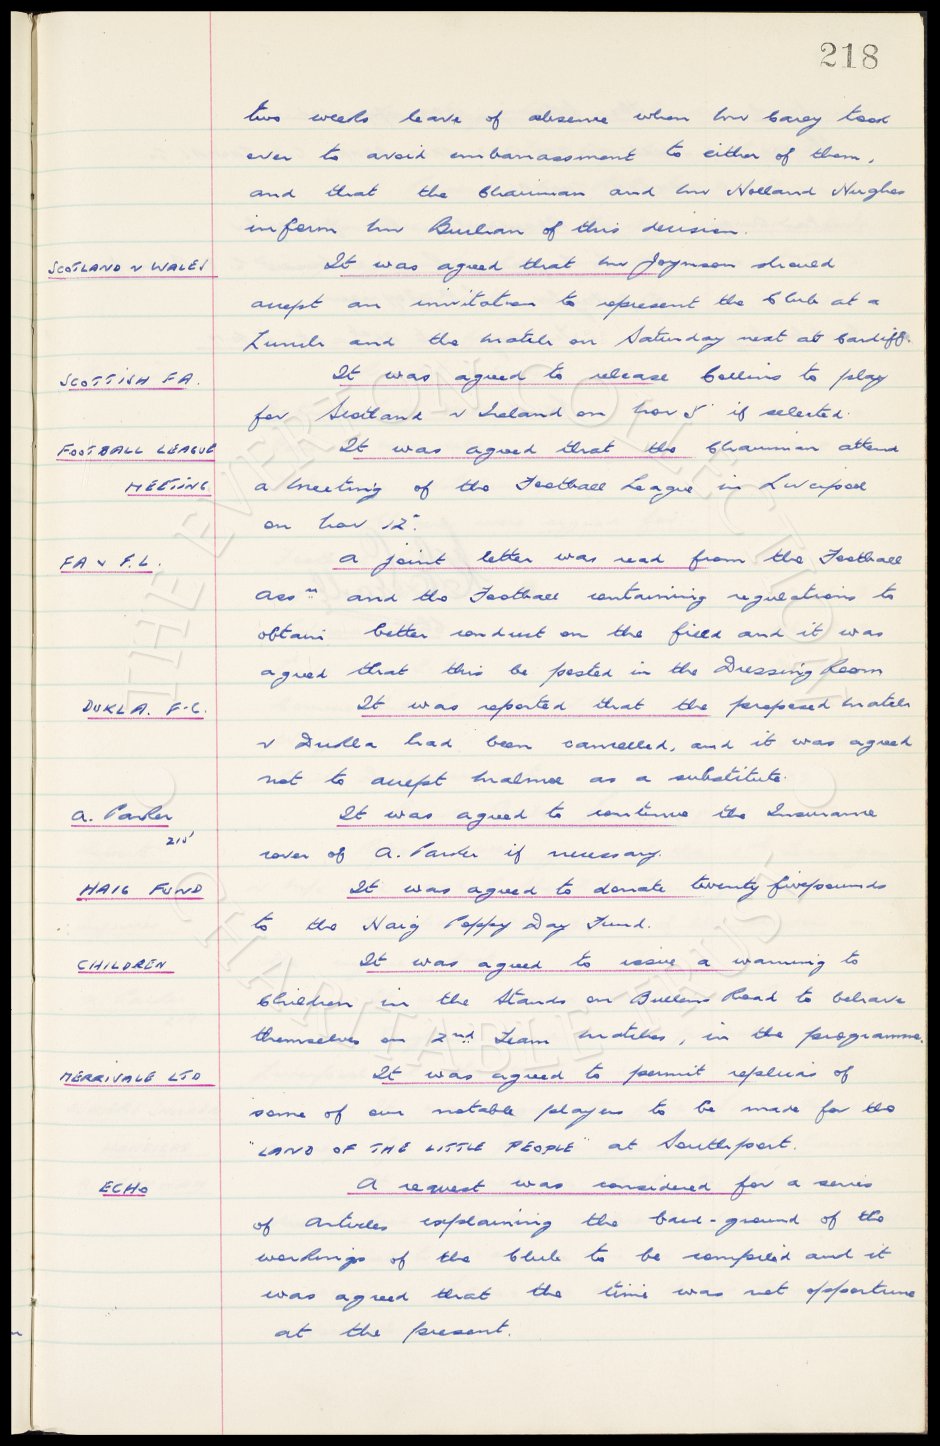 218
two weeks leave of absence when Mr Carey took
over to avoid embarrassment to either of them,
and that the Chairman and Mr Holland Hughes
inform Mr Buchan of this decision.
SCOTLAND v WALES It was agreed that Mr Joynson should
accept an invitation to represent the Club at a
Lunch and the match on Saturday next at Cardiff.
SCOTTISH FA. It was agreed to release Collins to play
for Scotland v Ireland on Nov 5 if selected.
FOOTBALL LEAGUE It was agreed that the Chairman attend
MEETING a meeting of the Football League in Liverpool
on Nov 12".
FA & F.L. A joint letter was read from the Football
Assn and the Football containing regulations to
obtain better conduct on the field and it was
agreed that this be posted in the Dressing Room
DUKLA. F.C. It was reported that the proposed match
v Dukla had been cancelled, and it was agreed
not to accept Malmoe as a substitute.
A. Parker It was agreed to continue the Insurance
215
cover of A. Parker if necessary.
HAIG FUND It was agreed to donate twenty five pounds
to the Haig Poppy Day Fund.
CHILDREN It was agreed to issue a warning to
Children in the Stands on Bullens Road to behave
themselves on 2nd Team matches, in the programme.
MERRIVALE LTD It was agreed to permit replicas of
some of our notable players to be made for the
"LAND OF THE LITTLE PEOPLE" at Southport.
ECHO A request was considered for a series
of Articles explaining the back-ground of the
workings of the Club to be compiled and it
was agreed that the time was not opportune
at the present.
THE EVERTON COLLECTION
CHARITABLE TRUST